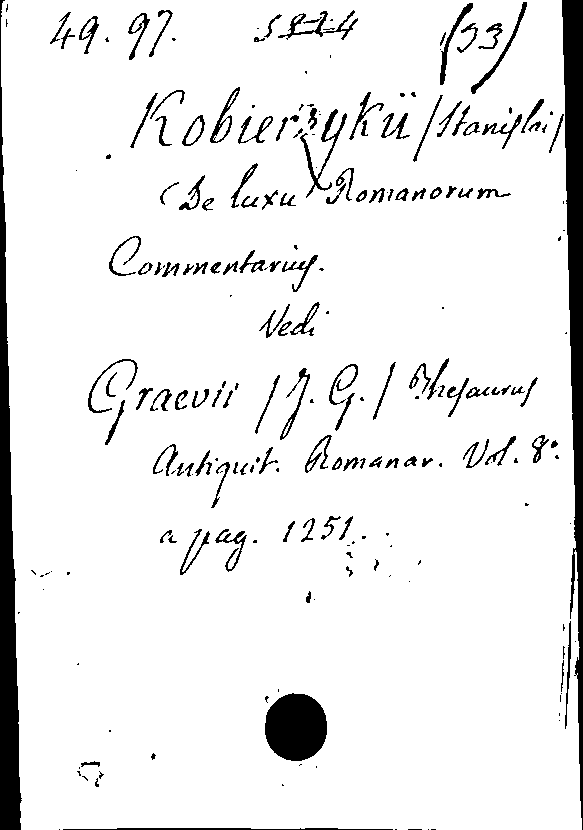 49. 97. (33)
Kobierzykii /Stanislai/
De luxu Romanorum
Commentarius.
Vedi
Graevii /J. G./ Thesaurus
Antiquit. Romanar. Vol. 8º.
a pag. 1251.